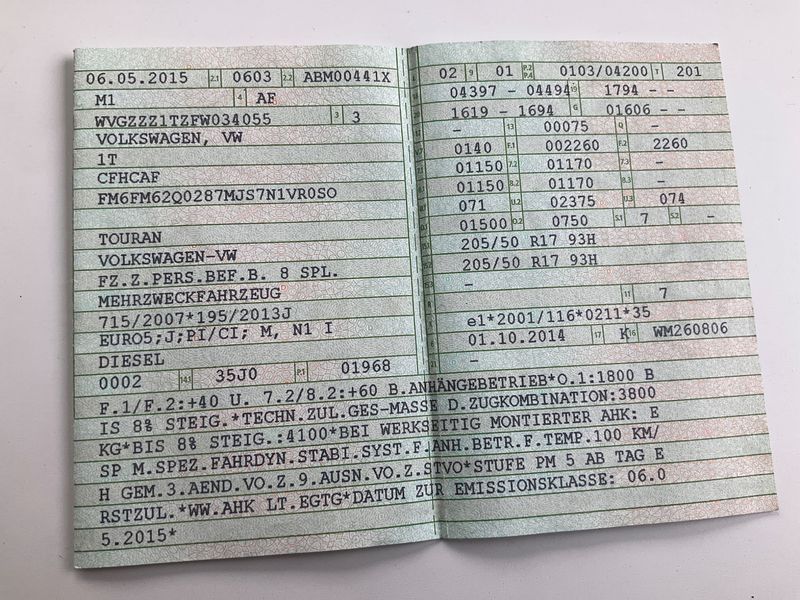 06.05.2015 2.1 0603 2.2 ABM00441X
M1 4 AF
WVGZZZ1TZFW034055 3 3
VOLKSWAGEN, VW
1T
CFHCAF
FM6FM62Q0287MJS7N1VR0SO
TOURAN
VOLKSWAGEN-VW
FZ.Z.PERS.BEF.B. 8 SPL.
MEHRZWECKFAHRZEUG
715/2007*195/2013J
EURO5;J;PI/CI; M, N1 I
DIESEL
0002 14.1 35J0 P.1 01968
02 9 01 P.2 P.4 0103/04200 T 201
04397 - 04494 1794 - -
1619 - 1694 G 01606 - -
- 13 00075 Q -
0140 F.1 002260 F.2 2260
01150 7.2 01170 7.3 -
01150 8.2 01170 8.3 -
071 U.2 02375 U.3 074
01500 O.2 0750 S.1 7 S.2 -
205/50 R17 93H
205/50 R17 93H
-
11 7
e1*2001/116*0211*35
01.10.2014 17 K 16 WM260806
-
F.1/F.2:+40 U. 7.2/8.2:+60 B.ANHÄNGEBETRIEB*O.1:1800 B
IS 8% STEIG.*TECHN.ZUL.GES-MASSE D.ZUGKOMBINATION:3800
KG*BIS 8% STEIG.:4100*BEI WERKSEITIG MONTIERTER AHK: E
SP M.SPEZ.FAHRDYN.STABI.SYST.F.ANH.BETR.F.TEMP.100 KM/
H GEM.3.AEND.VO.Z.9.AUSN.VO.Z.STVO*STUFE PM 5 AB TAG E
RSTZUL.*WW.AHK LT.EGTG*DATUM ZUR EMISSIONSKLASSE: 06.0
5.2015*